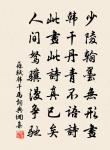 少陵翰墨無形畫
韓干丹青不語詩
此畫此詩真已矣
人間駑驥漫爭馳
蘇軾韓干馬